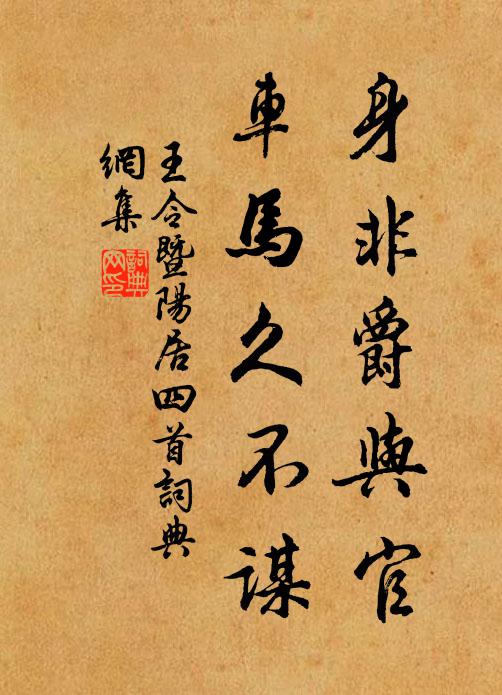 身非爵與官
車馬久不謀
王令暨陽居四首詞典
網集
詞典
网印